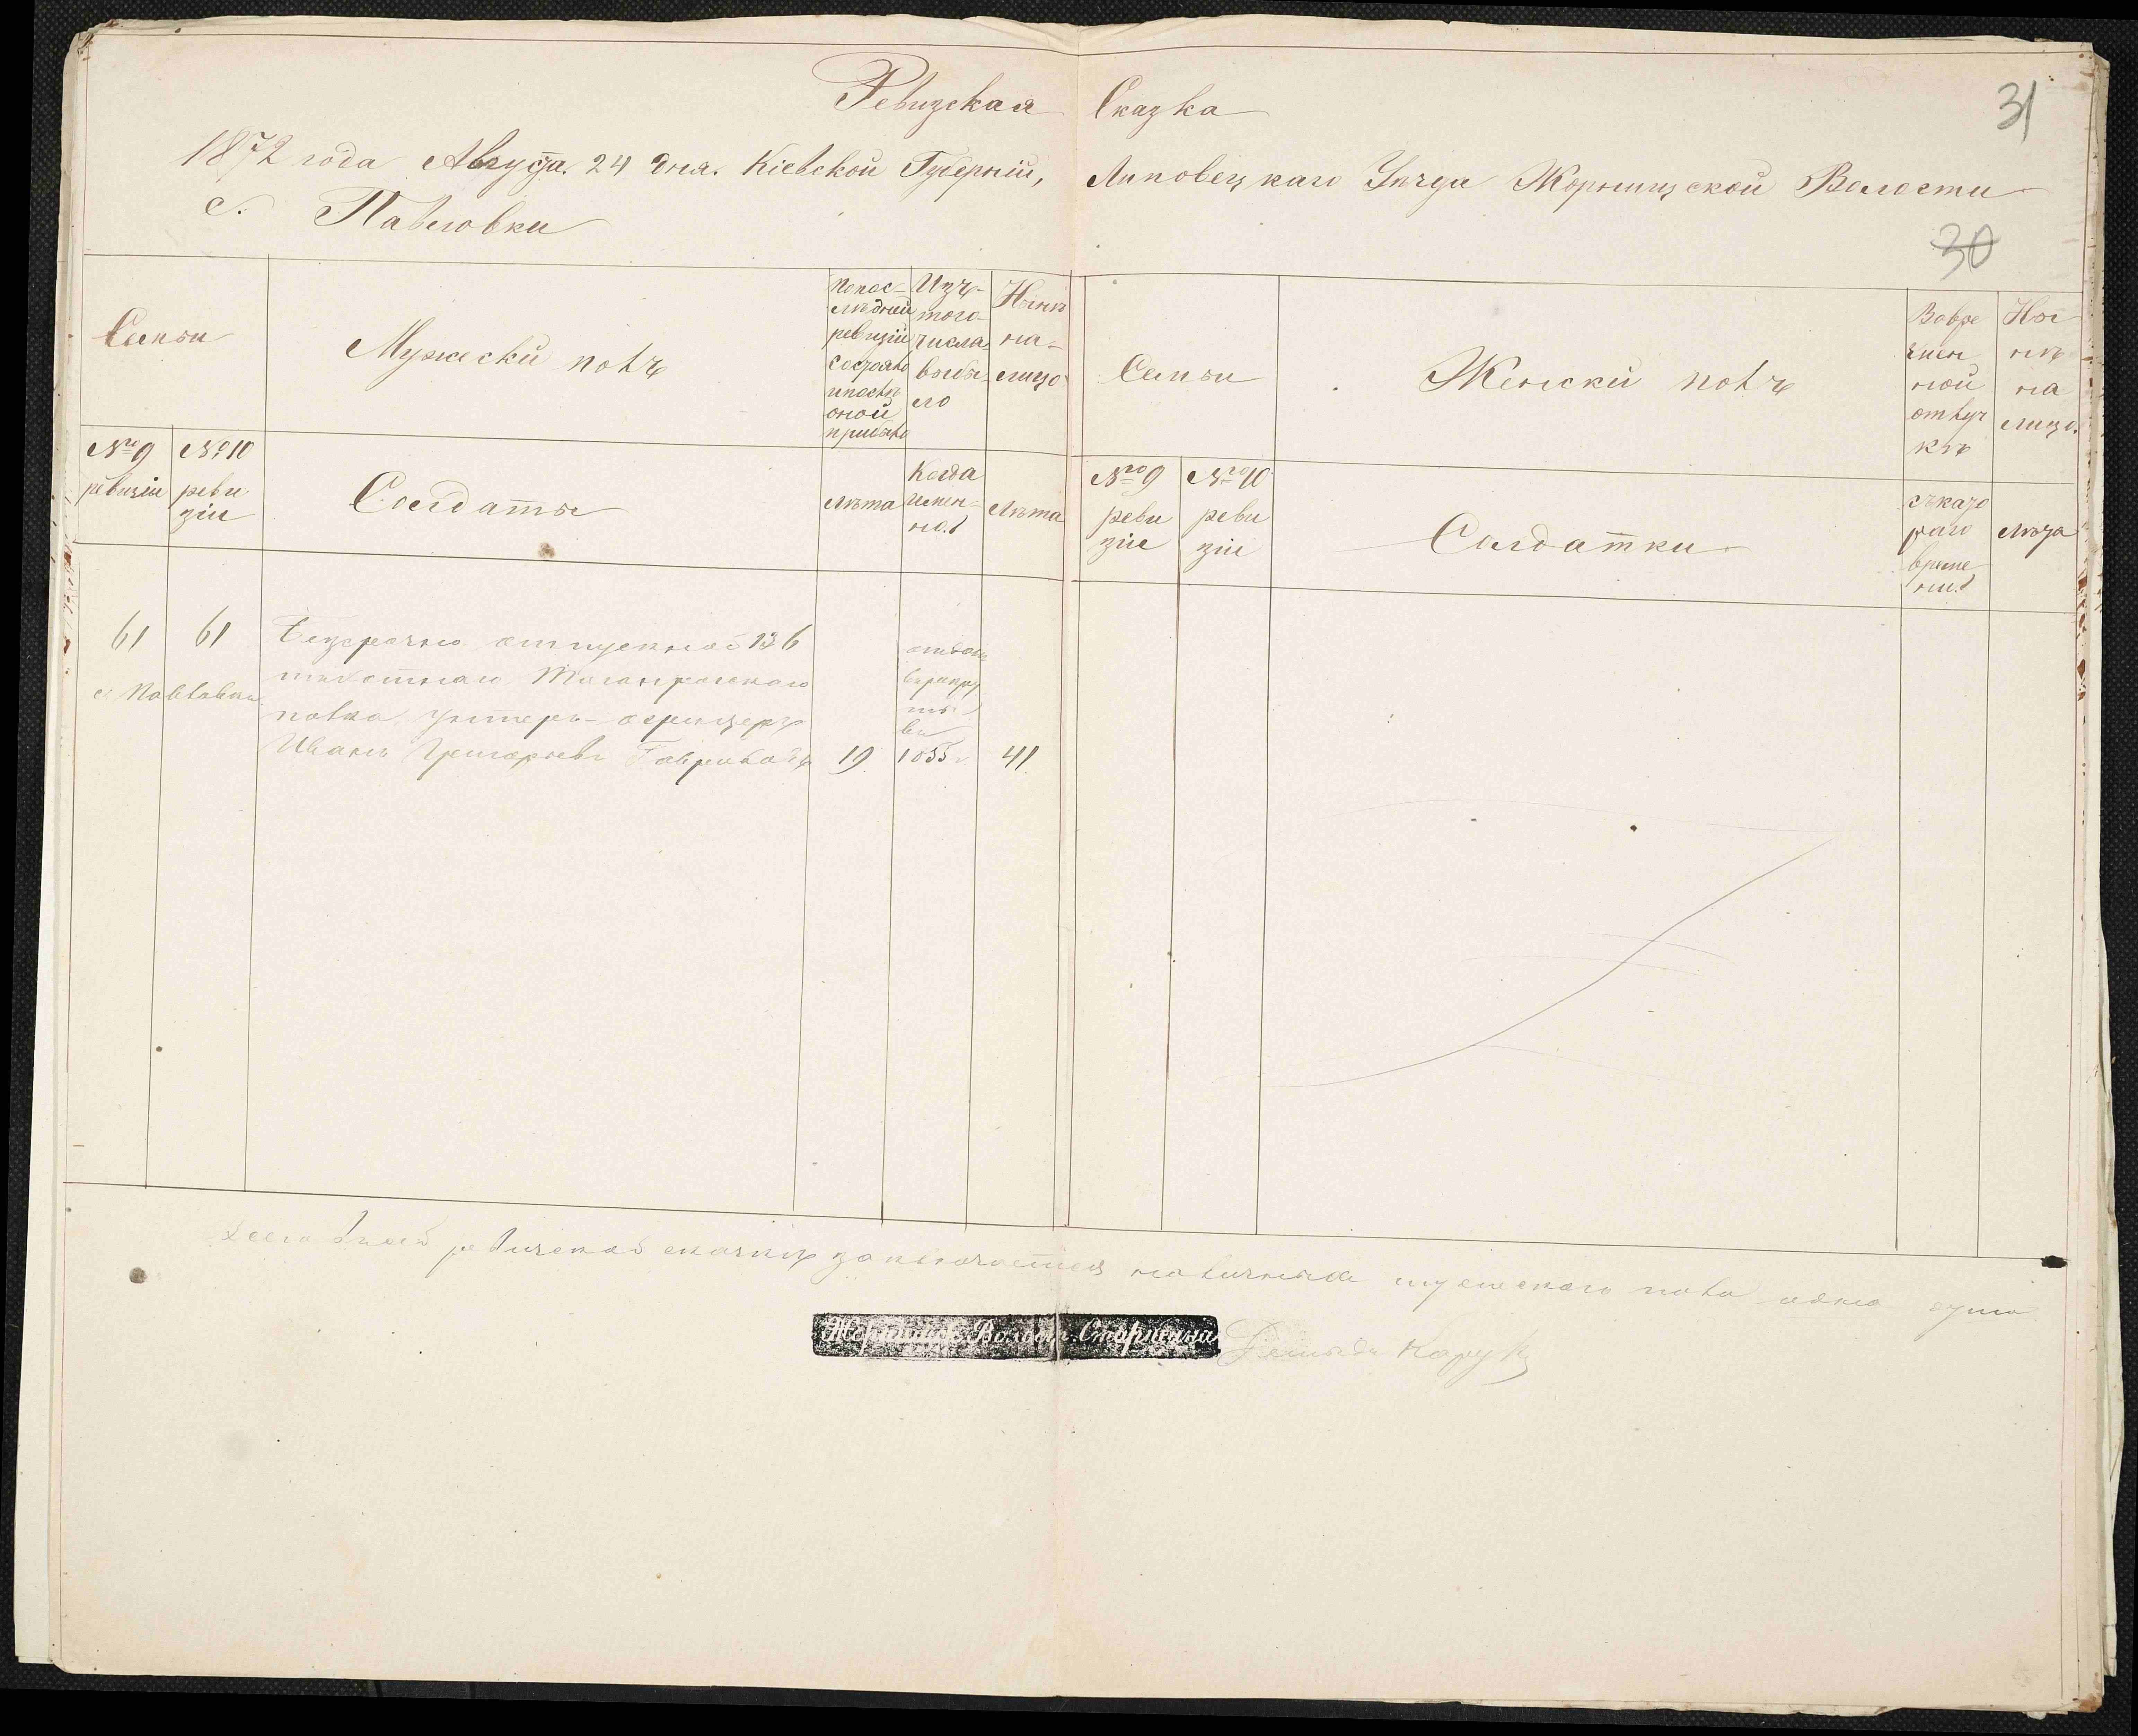 31
Ревизская Сказка
1872 года Августа 24 дня. Кіевской Губерніи, Липовецкаго Уезда Жорнищской Волости
с. Павловки
30
Семьи
Мужескій полъ
По пос-
лѣдней
ревизіи
состояло
и послѣ
оной
прибыло
Изъ
того
числа
выбы-
ло
Нынѣ
на-
лицо
Семьи
Женскій полъ
Во вре
мен
ной
отлуч
кѣ
Ны
нѣ
на
лицо.
№ 9
ревизіи
№ 10
реви
зіи
Солдаты
Лѣта
Когда
имен-
но
Лѣта
№ 9
реви
зіи
№ 10
реви
зіи
Солдатки
съ како
раго
време
ни
Лѣта
61
61
с Павловки
Безсрочно отпускной 136
пехотнаго Таганрогскаго
полка унтеръ-офицеръ
Иванъ Григорьевъ
19
отдан
в рекру
ты
въ
1855 г
41
Всего в сей ревизской сказки заключается наличныхъ мужескаго пола одна душа
Жорнищск. Волост. Старшина
Демидъ